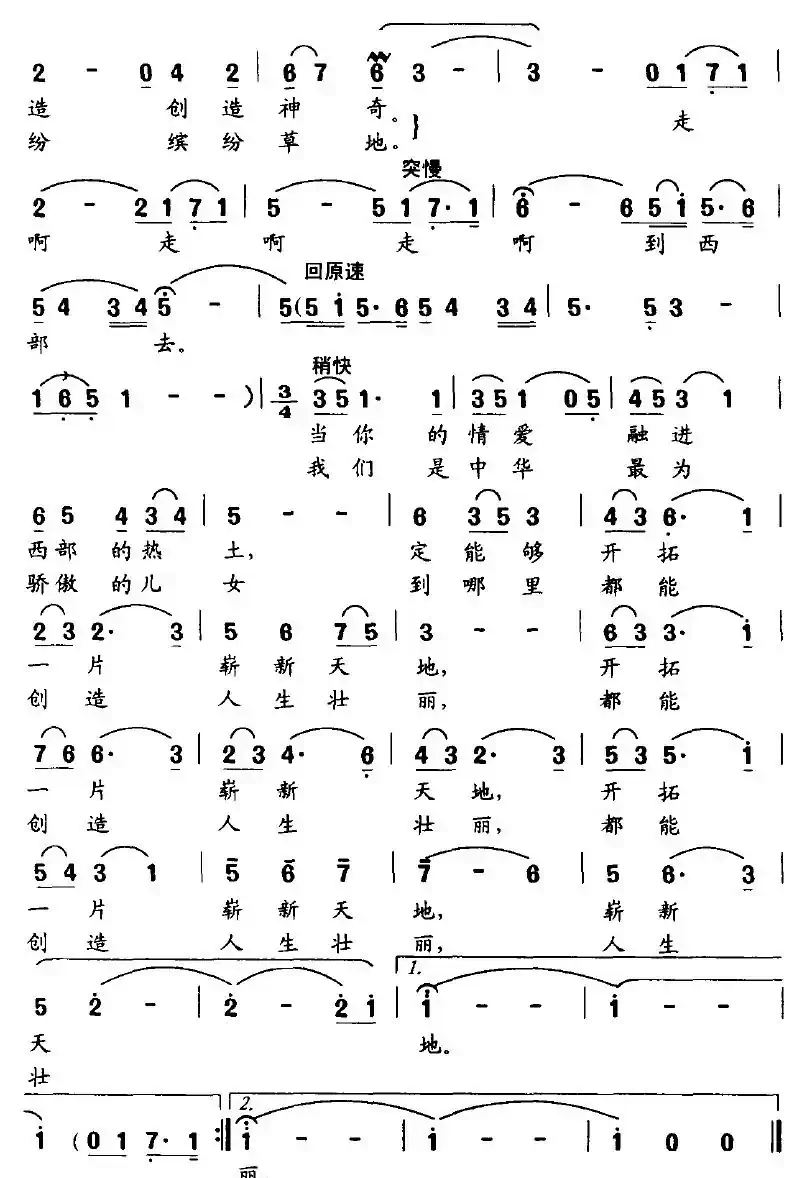 2 - 0 4 2 | 6 7 6 3 - | 3 - 0 1 7 1 |
造 创 造 神 奇。 走
纷 缤 纷 草 地。}
突慢
2 - 2 1 7 1 | 5 - 5 1 7· 1 | 6 - 6 5 i 5· 6 |
啊 走 啊 走 啊 到 西
回原速
5 4 3 4 5 - | 5 (5 i 5· 6 5 4 3 4 | 5· 5 3 - |
部 去。
稍快
1 6 5 1 - - ) | 3/4 3 5 1· 1 | 3 5 1 0 5 | 4 5 3 1 |
当 你 的 情 爱 融 进
我 们 是 中 华 最 为
6 5 4 3 4 | 5 - - | 6 3 5 3 | 4 3 6· 1 |
西 部 的 热 土, 定 能 够 开 拓
骄 傲 的 儿 女 到 哪 里 都 能
2 3 2· 3 | 5 6 7 5 | 3 - - | 6 3 3· i |
一 片 崭 新 天 地, 开 拓
创 造 人 生 壮 丽, 都 能
7 6 6· 3 | 2 3 4· 6 | 4 3 2· 3 | 5 3 5· i |
一 片 崭 新 天 地, 开 拓
创 造 人 生 壮 丽, 都 能
5 4 3 1 | 5 6 7 | 7 - 6 | 5 6· 3 |
一 片 崭 新 天 地, 崭 新
创 造 人 生 壮 丽, 人 生
1.
5 2 - | 2 - 2 i | i - - | i - - |
天 地。
壮
2.
i (0 1 7· 1 :| i - - | i - - | i 0 0 ‖
丽